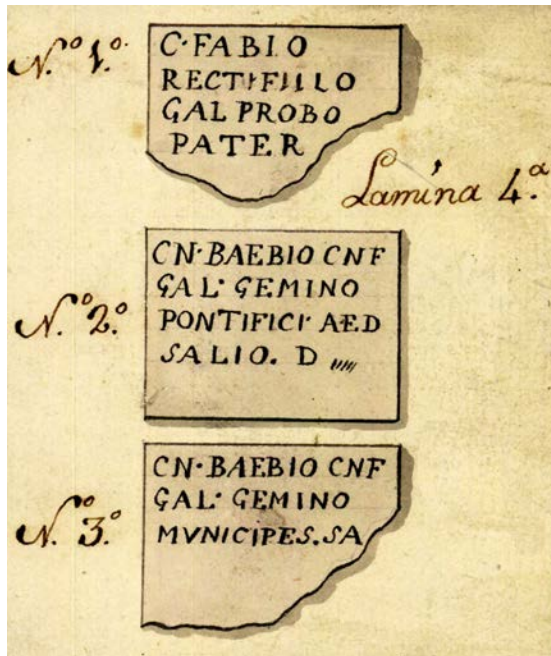 N.º 1.º
C·FABIO
RECTIFILLO
GAL PROBO
PATER
Lamina 4.ª
N.º 2.º
CN·BAEBIO CNF
GAL· GEMINO
PONTIFICI· AED
SALIO. D
N.º 3.º
CN·BAEBIO CNF
GAL· GEMINO
MVNICIPES.SA